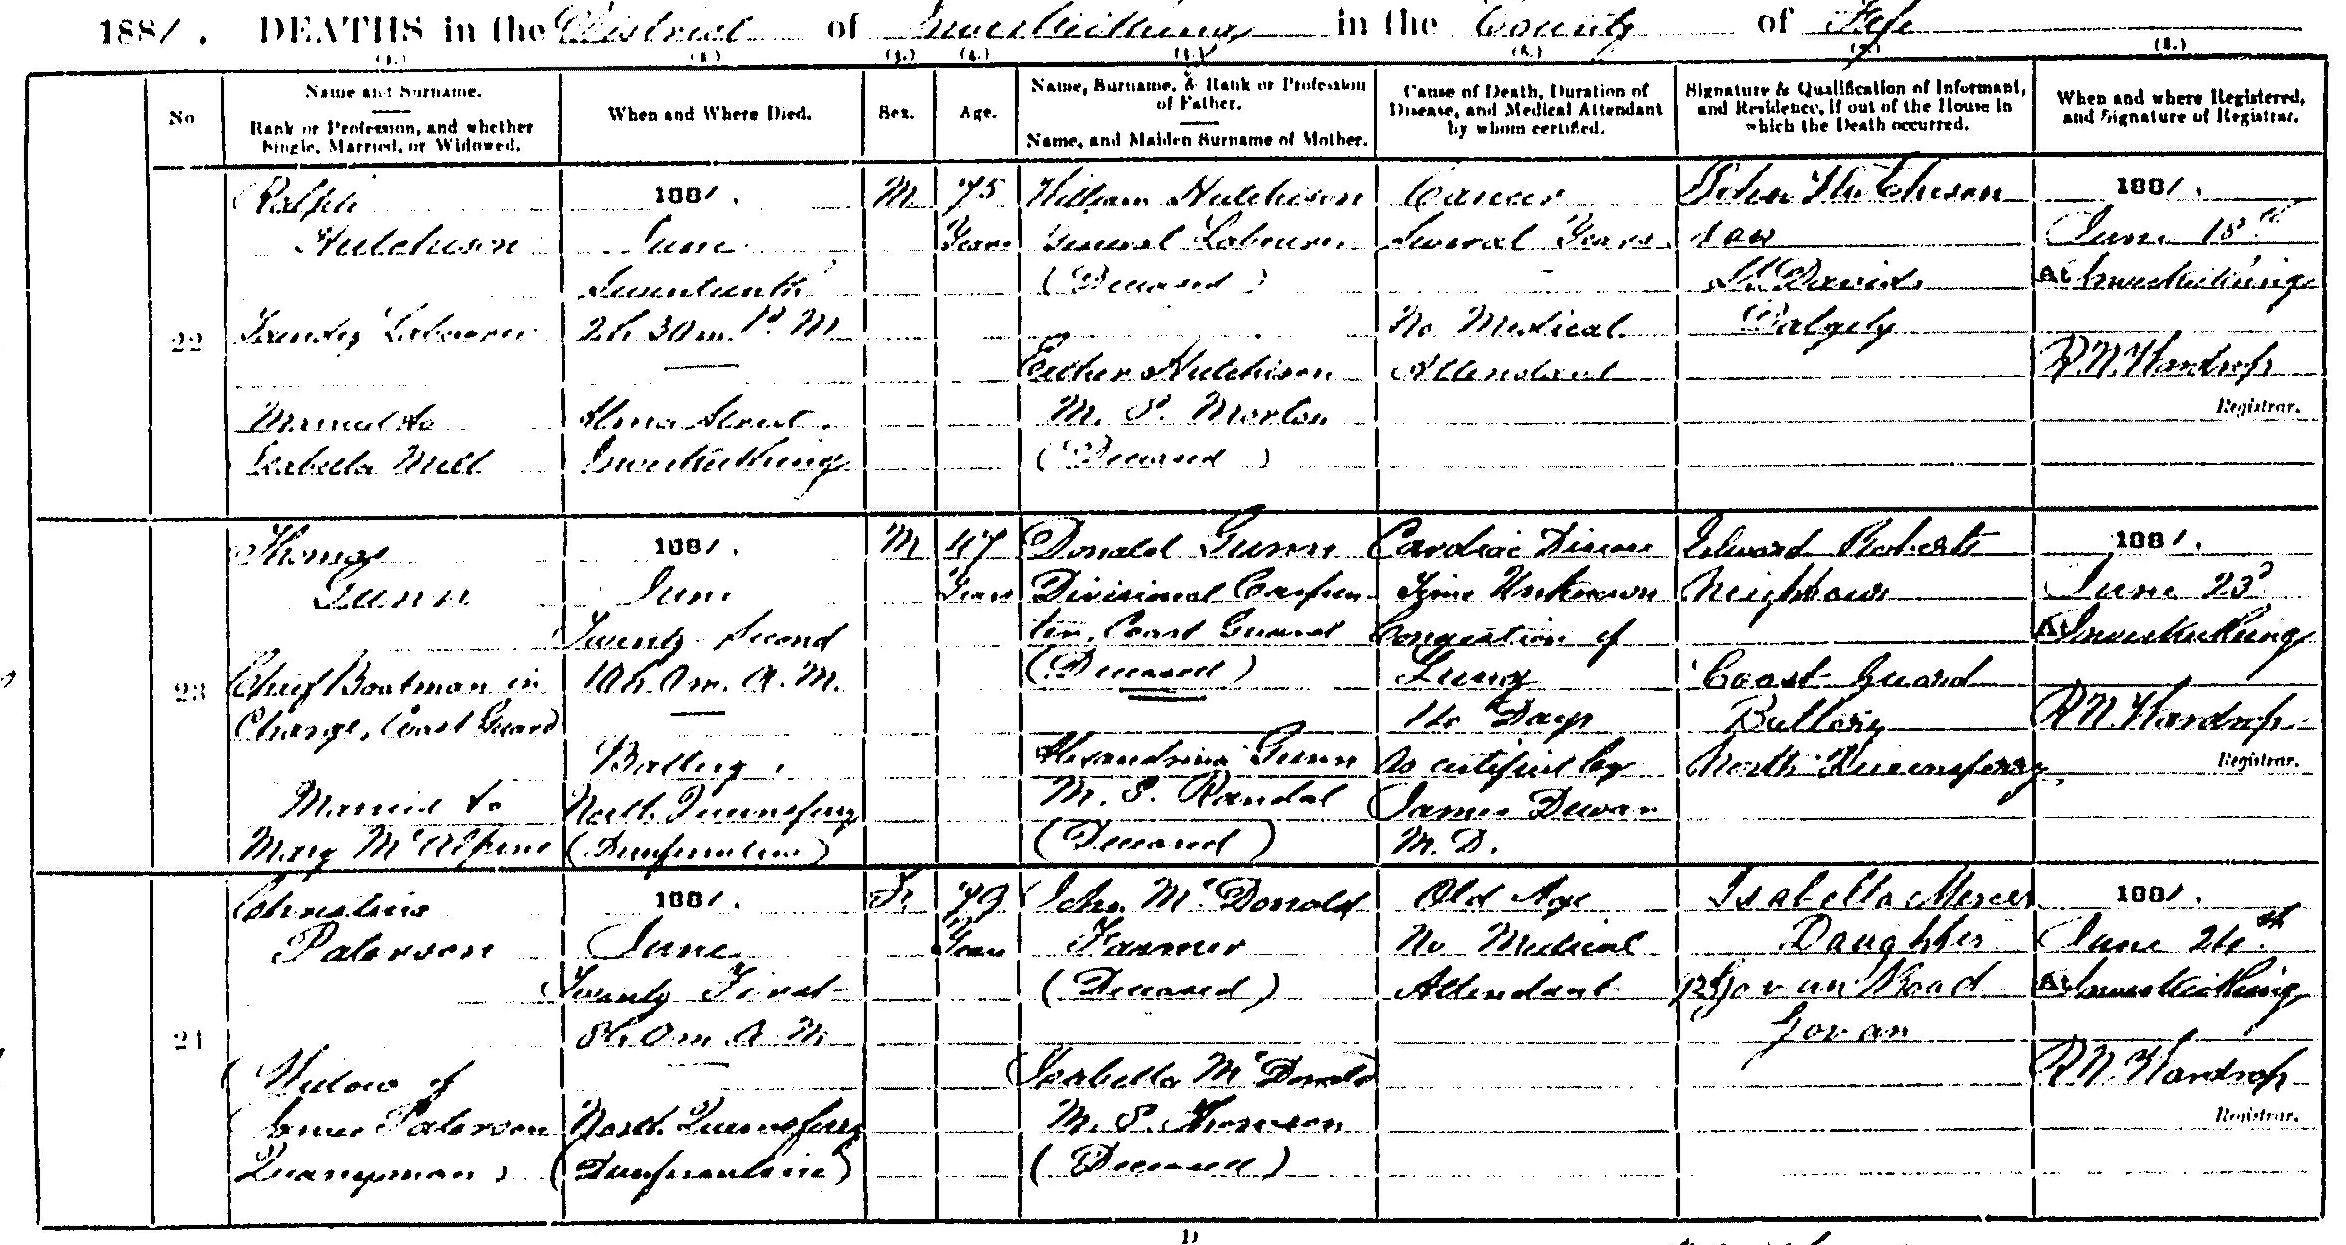 1881. DEATHS in the District of Inverkeithing in the County of Fife
(1.) (2.) (3.) (4.) (5.) (6.) (7.) (8.)
No
Name and Surname.
Rank or Profession, and whether
Single, Married, or Widowed.
When and Where Died.
Sex.
Age.
Name, Surname, & Rank or Profession
of Father.
Name, and Maiden Surname of Mother.
Cause of Death, Duration of
Disease, and Medical Attendant
by whom certified.
Signature & Qualification of Informant,
and Residence, if out of the House in
which the Death occurred.
When and where Registered,
and Signature of Registrar.
22
Ralph
Hutchison
Labourer
Married to
Isabella Mill
1881.
June
Seventeenth
2h. 30m. P. M.
Alma Street,
Inverkeithing
M
75
Years
William Hutchison
General Labourer
(Deceased)
Esther Hutchison
M. S. Morton
(Deceased)
Cancer
Several Years
No Medical
Attendant
John Hutchison
Son
St. Davids
Dalgety
1881.
June 18th
At Inverkeithing
R. N. Wardrop
Registrar.
23
Thomas
Gunn
Chief Boatman in
Charge, Coast Guard
Married to
Mary McAlpine
1881.
June
Twenty Second
10h. 0m. A. M.
Battery,
North Queensferry
(Dunfermline)
M
47
Years
Donald Gunn
Divisional Carpen-
ter, Coast Guard
(Deceased)
Alexandrina Gunn
M. S. Randal
(Deceased)
Cardiac Disease
Time Unknown
Congestion of
Lung
14 Days
As certified by
James Dewar
M. D.
Edward Roberts
Neighbour
Coast Guard
Battery
North Queensferry
1881.
June 23d
At Inverkeithing
R. N. Wardrop
Registrar.
24
Christina
Paterson
Widow of
James Paterson
Quarryman
1881.
June
Twenty First
8h. 0m. A. M.
North Queensferry
(Dunfermline)
F.
79
Years
John McDonald
Farmer
(Deceased)
Isabella McDonald
M. S. Thomson
(Deceased)
Old Age
No Medical
Attendant
Isabella Mercer
Daughter
Govan Road
Govan
1881.
June 24th
At Inverkeithing
R. N. Wardrop
Registrar.
D